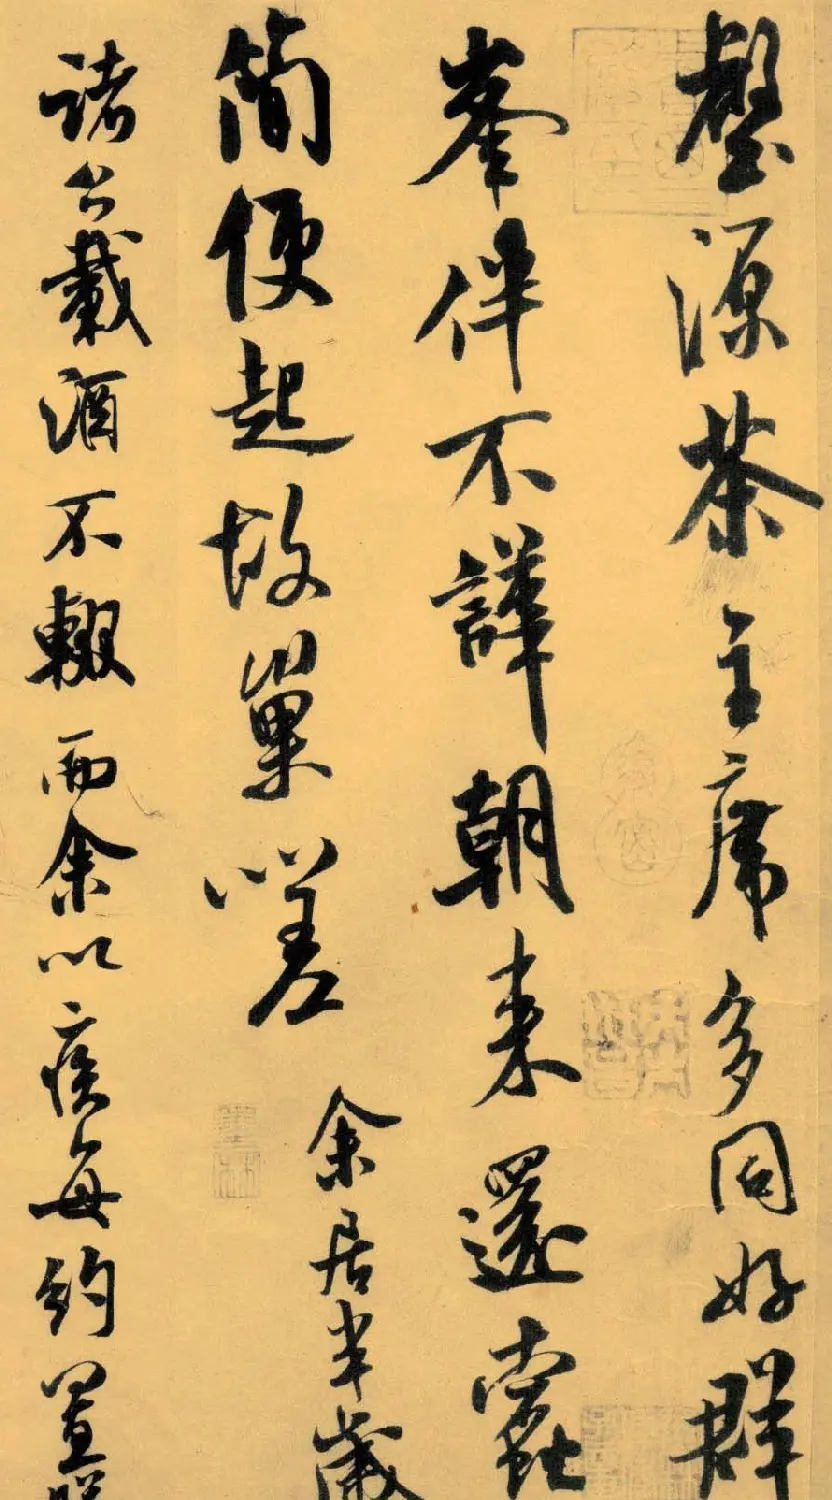 壑源茶主席多同好群
峯伴不譁朝来還蠹
簡便起故巢嗟
余居半歲
諸公載酒不輟而余以疾每約置